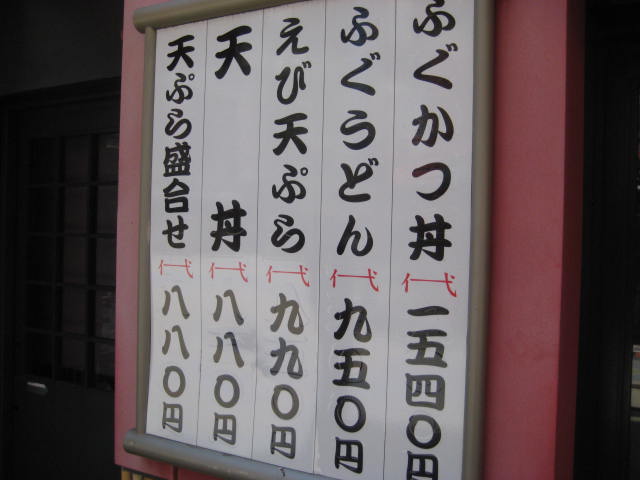 ふぐかつ丼 代 一五四〇円
ふぐうどん 代 九五〇円
えび天ぷら 代 九九〇円
天丼 代 八八〇円
天ぷら盛合せ 代 八八〇円